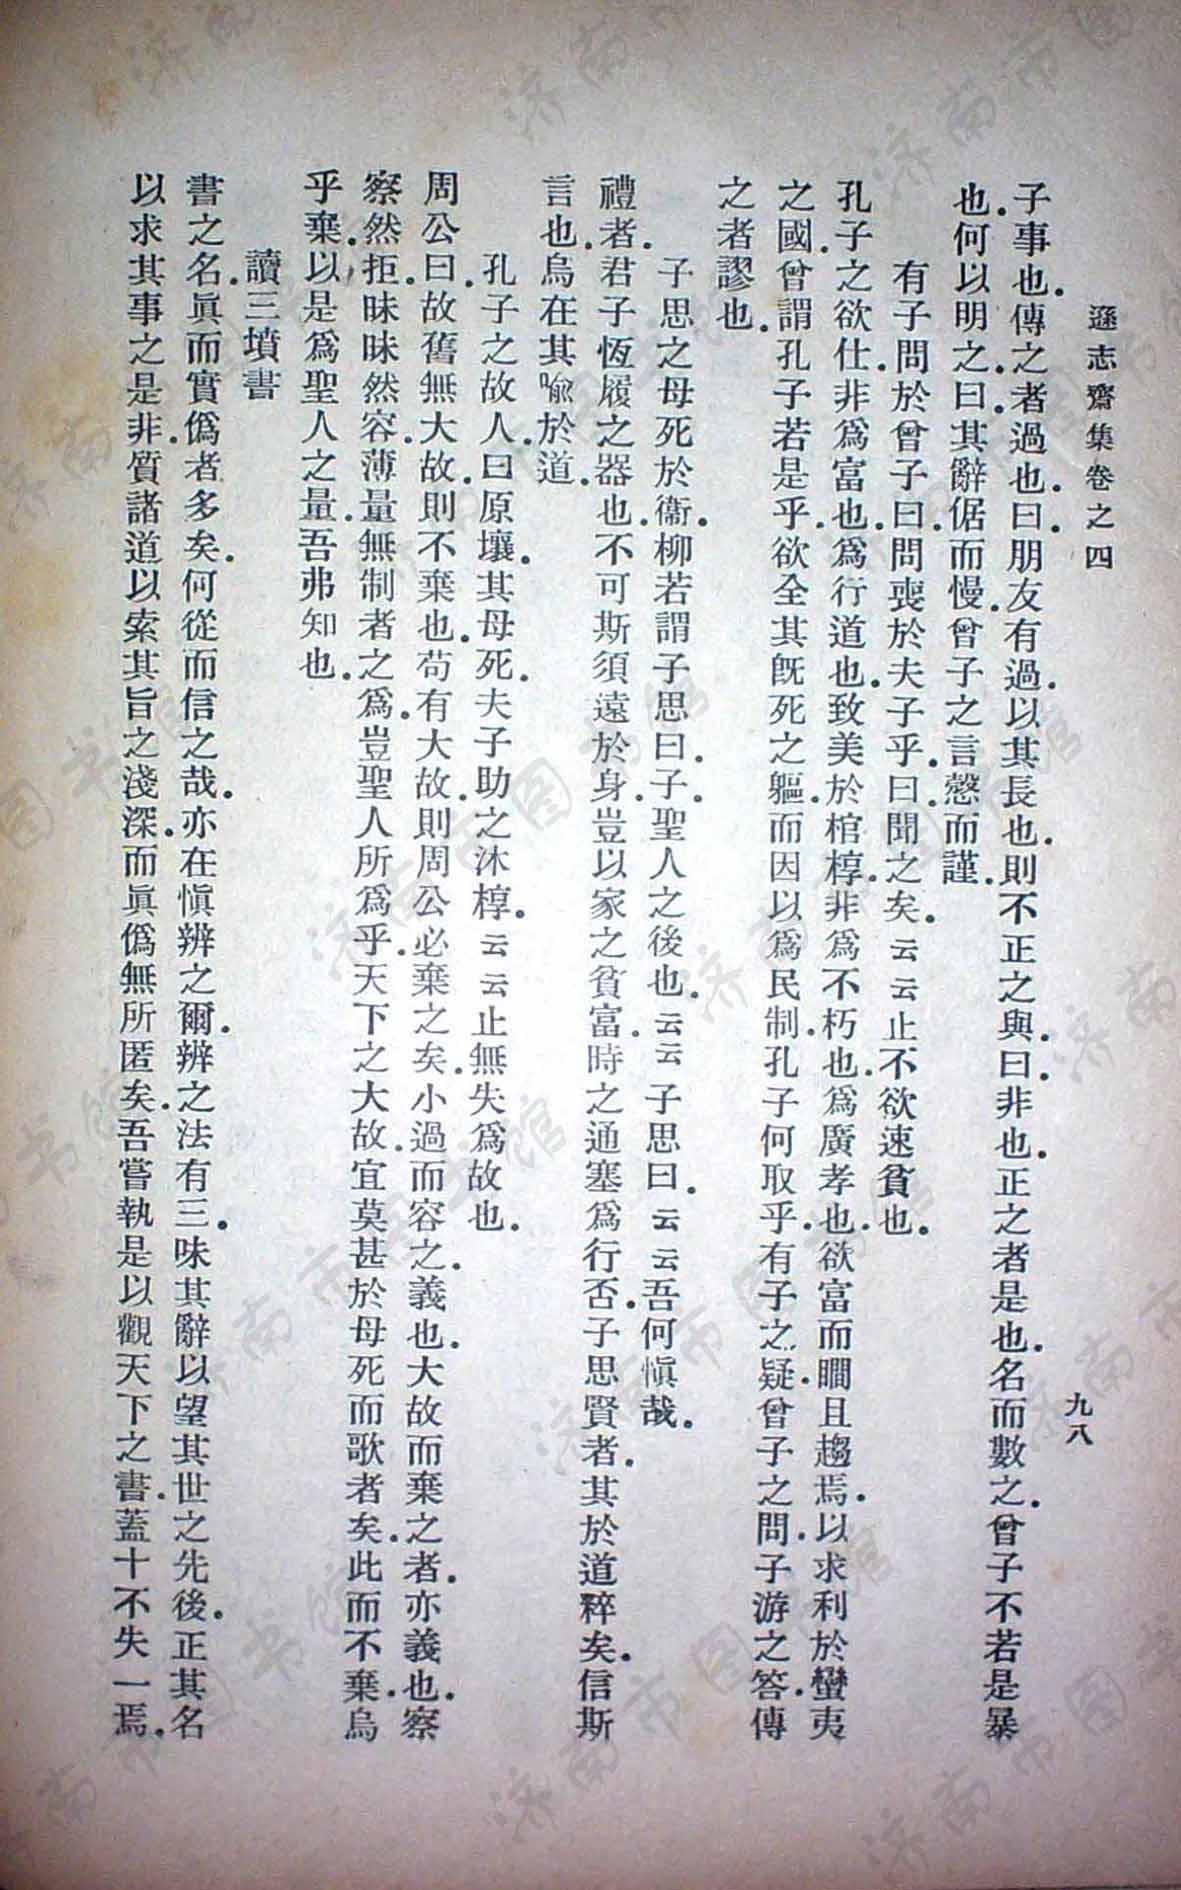 遜志齋集卷之四
九八
子事也.傳之者過也.曰.朋友有過.以其長也.則不正之與.曰.非也.正之者是也.名而數之.曾子不若是暴
也.何以明之.曰.其辭倨而慢.曾子之言愨而謹.
有子問於曾子曰.問喪於夫子乎.曰.聞之矣.云云止不欲速貧也.
孔子之欲仕.非爲富也.爲行道也.致美於棺椁.非爲不朽也.爲廣孝也.欲富而瞷且趨焉.以求利於蠻夷
之國.曾謂孔子若是乎.欲全其旣死之軀.而因以爲民制.孔子何取乎.有子之疑.曾子之問.子游之答.傳
之者謬也.
子思之母死於衞.柳若謂子思曰.子.聖人之後也.云云子思曰.云云吾何愼哉.
禮者.君子恆履之器也.不可斯須遠於身.豈以家之貧富.時之通塞爲行否.子思賢者.其於道粹矣.信斯
言也.烏在其喻於道.
孔子之故人.曰原壤.其母死.夫子助之沐椁.云云止無失爲故也.
周公曰.故舊無大故.則不棄也.苟有大故.則周公必棄之矣.小過而容之.義也.大故而棄之者.亦義也.察
察然拒.昧昧然容.薄量無制者之爲.豈聖人所爲乎.天下之大故.宜莫甚於母死而歌者矣.此而不棄.烏
乎棄.以是爲聖人之量.吾弗知也.
讀三墳書
書之名.眞而實僞者多矣.何從而信之哉.亦在愼辨之爾.辨之法有三.味其辭以望其世之先後.正其名
以求其事之是非.質諸道以索其旨之淺深.而眞僞無所匿矣.吾嘗執是以觀天下之書.蓋十不失一焉.
济南市图书馆